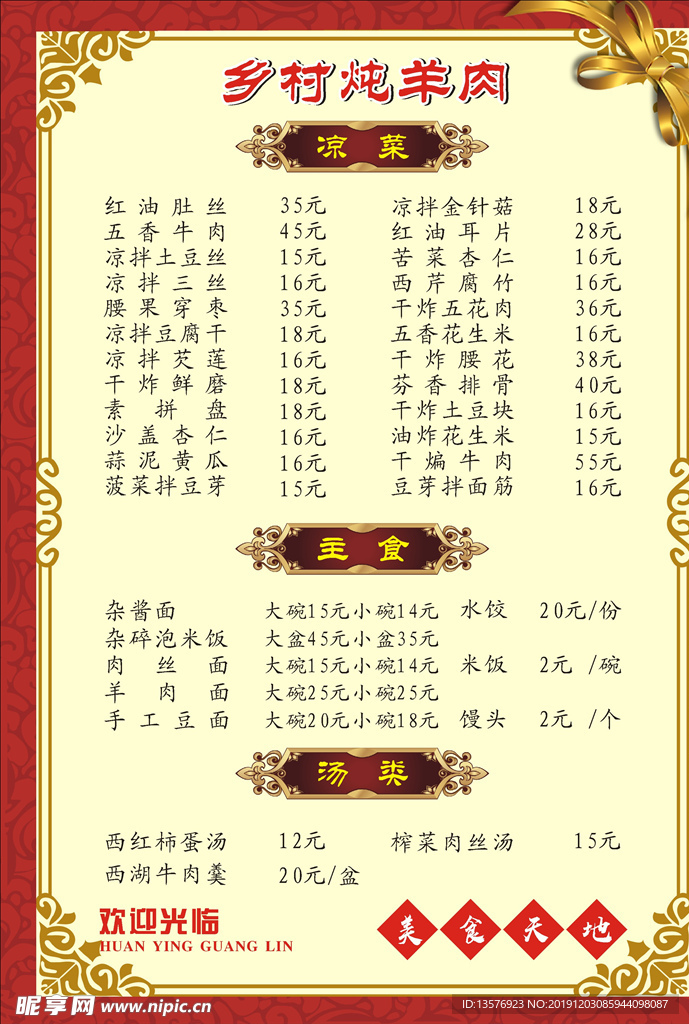 乡村炖羊肉
凉菜
红油肚丝 35元 凉拌金针菇 18元
五香牛肉 45元 红油耳片 28元
凉拌土豆丝 15元 苦菜杏仁 16元
凉拌三丝 16元 西芹腐竹 16元
腰果穿枣 35元 干炸五花肉 36元
凉拌豆腐干 18元 五香花生米 16元
凉拌芡莲 16元 干炸腰花 38元
干炸鲜磨 18元 芬香排骨 40元
素拼盘 18元 干炸土豆块 16元
沙盖杏仁 16元 油炸花生米 15元
蒜泥黄瓜 16元 干煸牛肉 55元
菠菜拌豆芽 15元 豆芽拌面筋 16元
主食
杂酱面 大碗15元小碗14元 水饺 20元/份
杂碎泡米饭 大盆45元小盆35元
肉丝面 大碗15元小碗14元 米饭 2元 /碗
羊肉面 大碗25元小碗25元
手工豆面 大碗20元小碗18元 馒头 2元 /个
汤类
西红柿蛋汤 12元 榨菜肉丝汤 15元
西湖牛肉羹 20元/盆
欢迎光临
HUAN YING GUANG LIN
美食天地
昵享网 www.nipic.cn
ID:13576923 NO:20191203085944098087